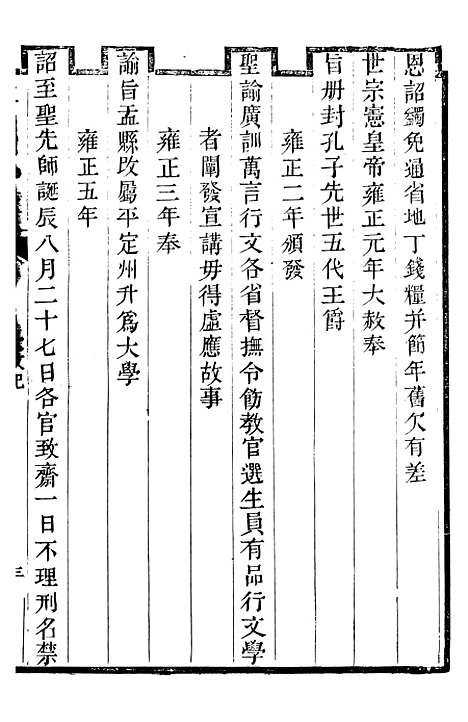 恩詔蠲免通省地丁錢糧并節年舊欠有差
世宗憲皇帝雍正元年大赦奉
旨册封孔子先世五代王爵
雍正二年頒發
聖諭廣訓萬言行文各省督撫令飭教官選生員有品行文學
者闡發宣講毋得虛應故事
雍正三年奉
諭旨盂縣改屬平定州升爲大學
雍正五年
詔至聖先師誕辰八月二十七日各官致齋一日不理刑名禁
三